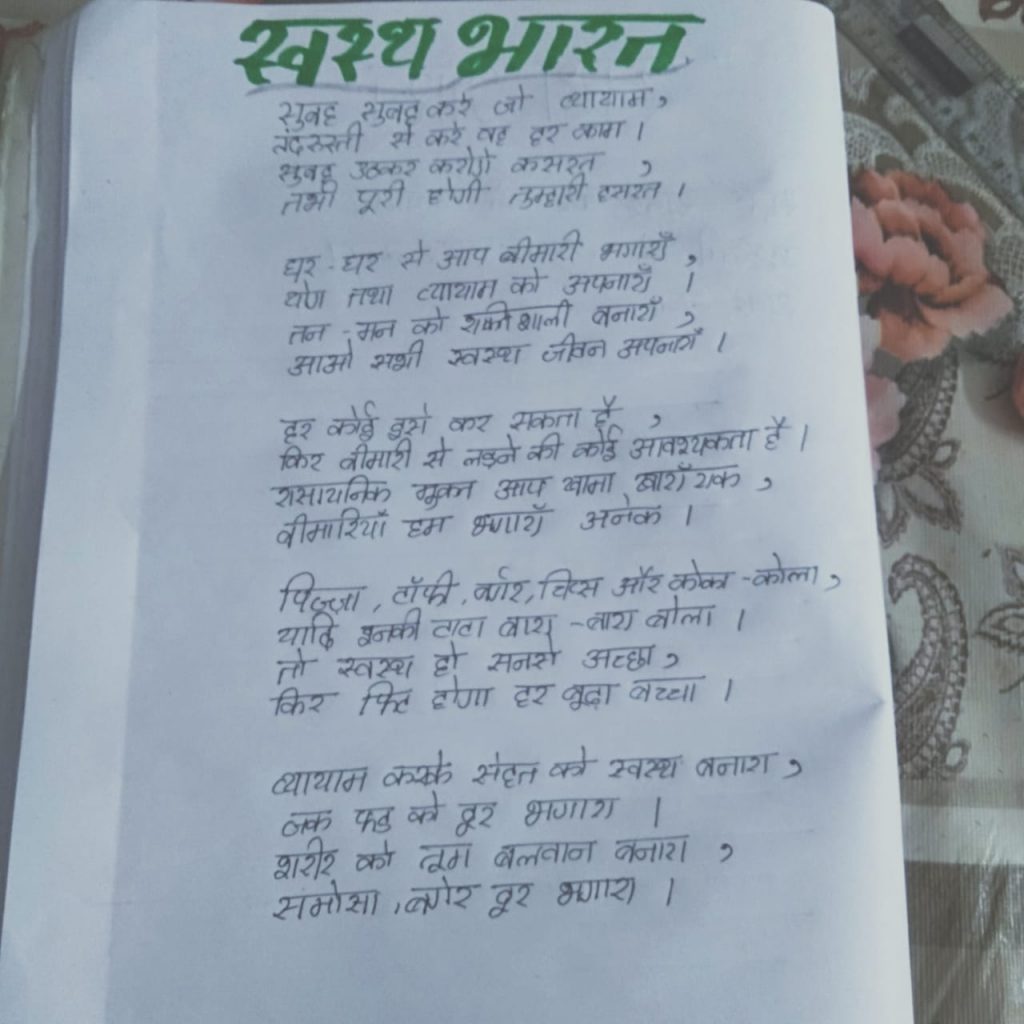 स्वस्थ भारत
सुबह सुबह करे जो व्यायाम,
तंदरुस्ती से करे वह हर काम ।
सुबह उठकर करोगे कसरत ,
तभी पूरी होगी तुम्हारी हसरत ।
घर - घर से आप बीमारी भगाएँ ,
योग तथा व्यायाम को अपनाएँ ।
तन - मन को शक्तिशाली बनाएँ ,
आओ सभी स्वस्थ जीवन अपनाएँ ।
हर कोई इसे कर सकता है ,
फिर बीमारी से लड़ने की कोई आवश्यकता है ।
रासायनिक मुक्त आप खाना खाएँ एक ,
बीमारियाँ हम भगाएँ अनेक ।
पिज़्ज़ा , टॉफी , बर्गर, चिप्स और कोका - कोला ,
यदि इनकी टाटा बाए - बाए बोला ।
तो स्वस्थ हो सबसे अच्छा ,
फिर फिट होगा हर बूढ़ा बच्चा ।
व्यायाम करके सेहत को स्वस्थ बनाए ,
जंक फूड को दूर भगाए ।
शरीर को तूम बलवान बनाए ,
समोसा , बर्गर दूर भगाए ।